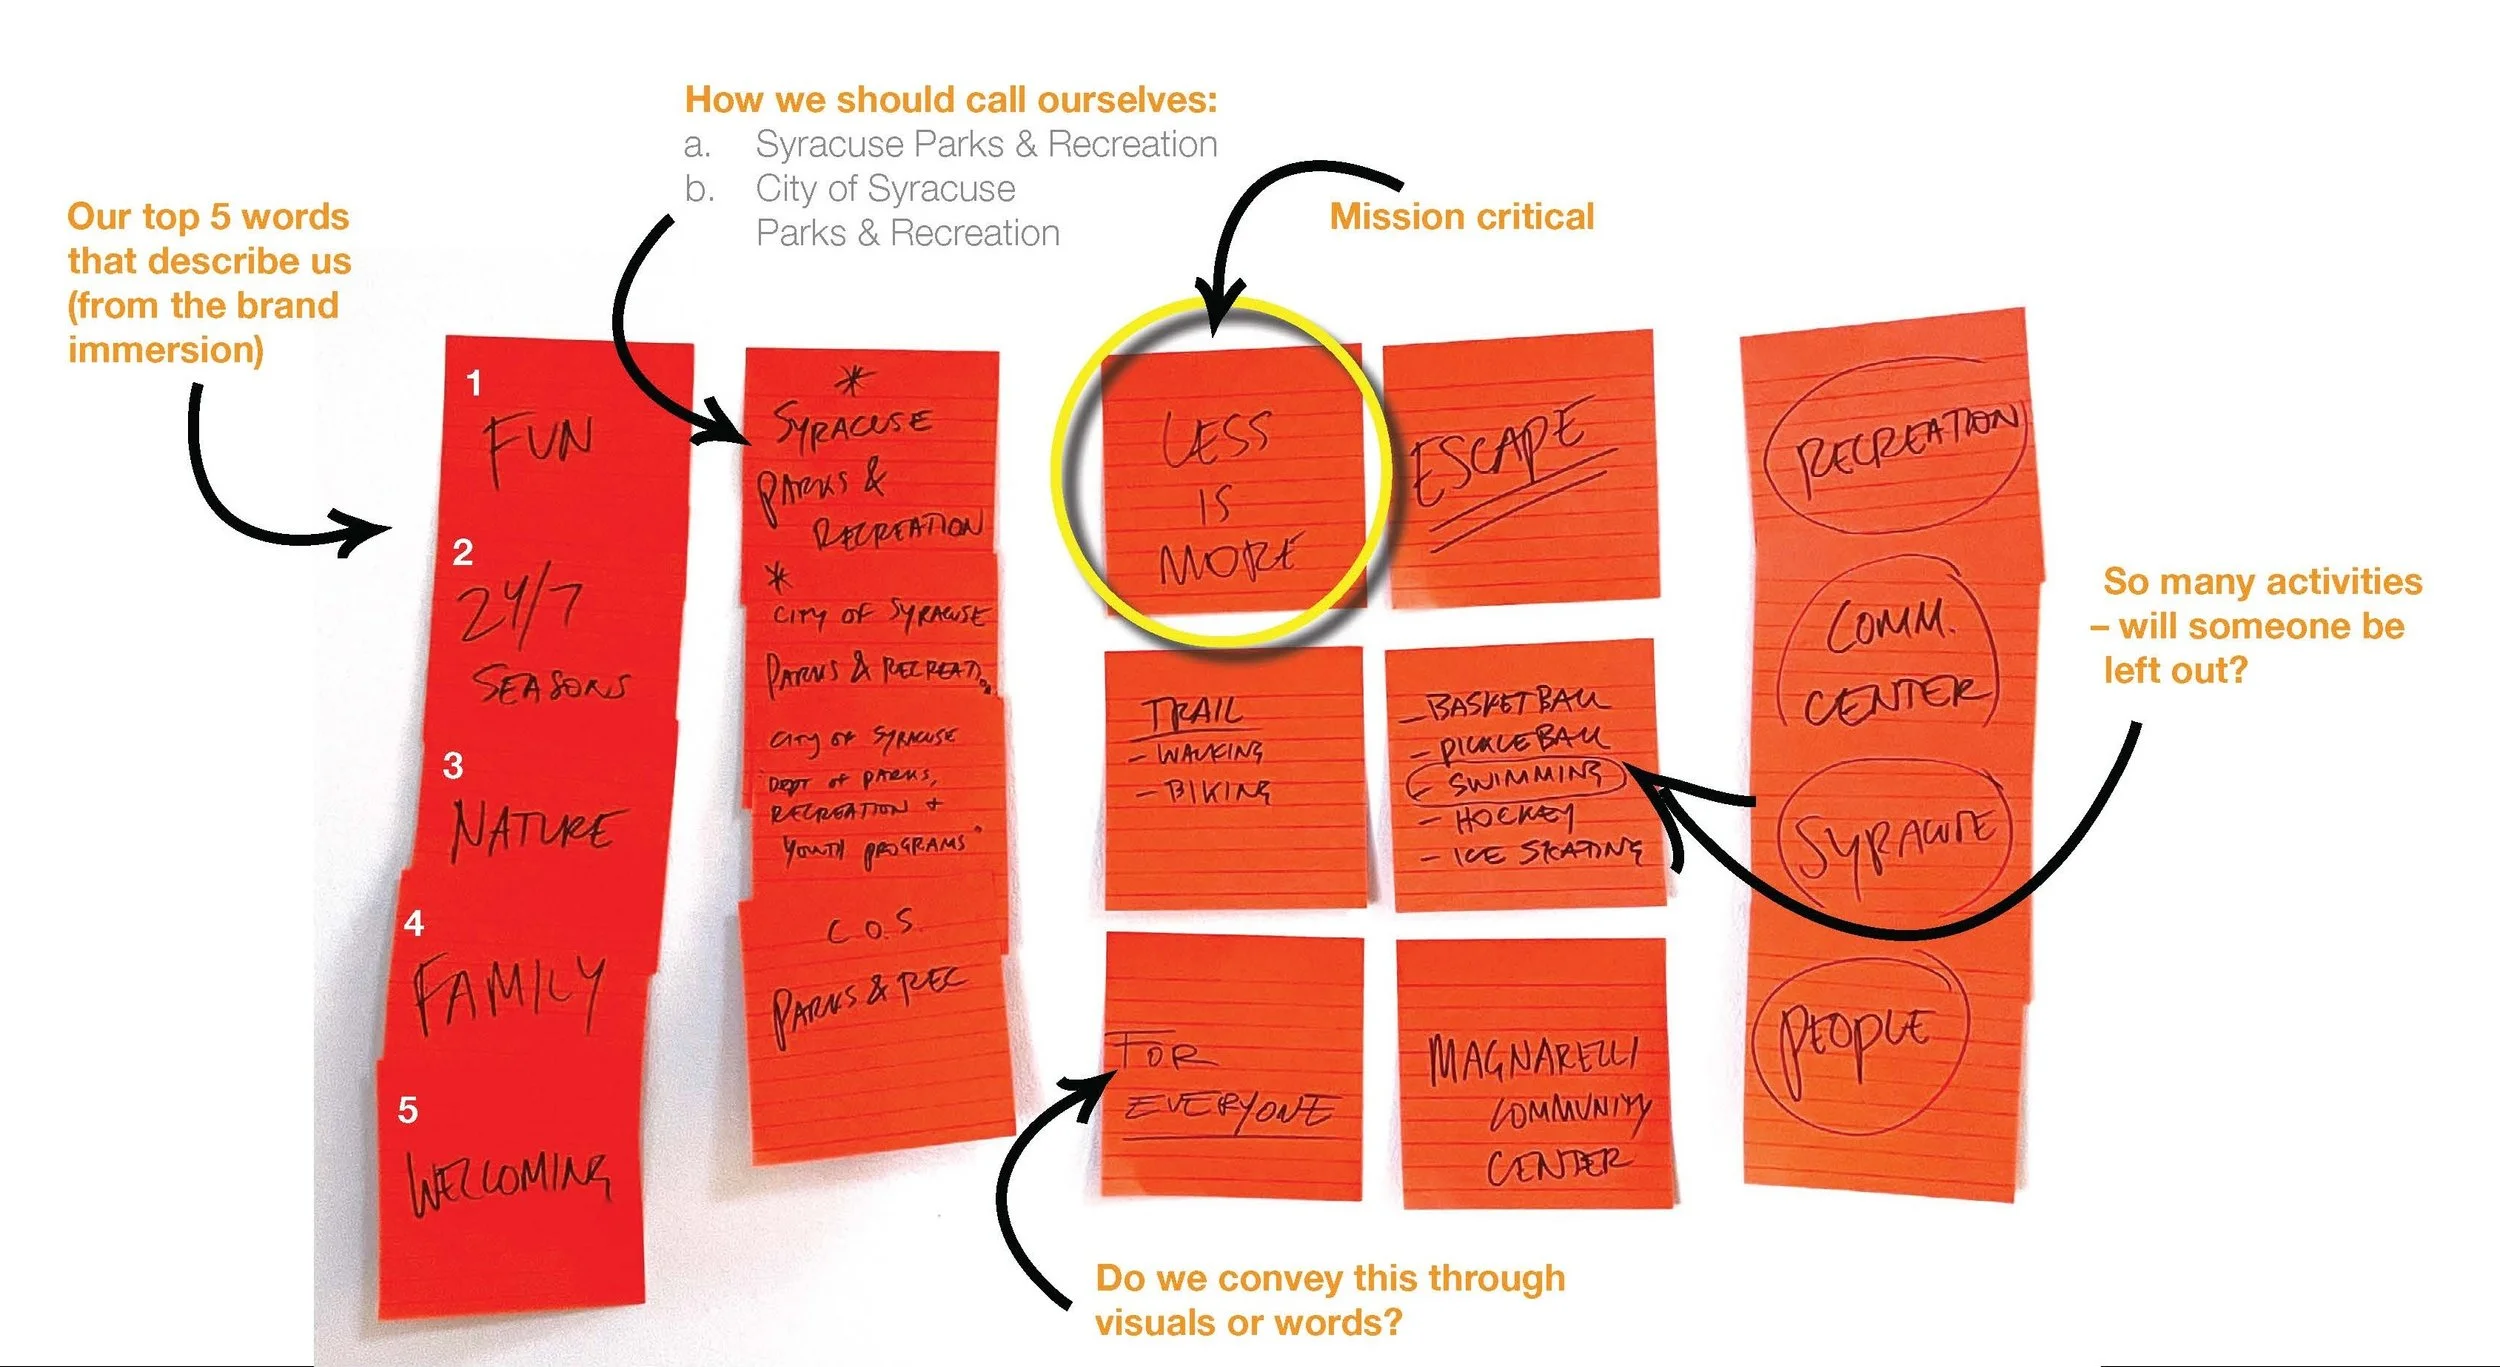 How we should call ourselves:
a. Syracuse Parks & Recreation
b. City of Syracuse
Parks & Recreation
Mission critical
Our top 5 words
that describe us
(from the brand
immersion)
1
FUN
2
24/7
SEASONS
3
NATURE
4
FAMILY
5
WELCOMING
*
SYRACUSE
PARKS &
RECREATION
*
CITY OF SYRACUSE
PARKS & RECREATION
CITY OF SYRACUSE
"DEPT OF PARKS,
RECREATION +
YOUTH PROGRAMS"
C.O.S.
PARKS & REC
LESS
IS
MORE
ESCAPE
TRAIL
- WALKING
- BIKING
- BASKETBALL
- PICKLEBALL
- SWIMMING
- HOCKEY
- ICE SKATING
FOR
EVERYONE
MAGNARELLI
COMMUNITY
CENTER
RECREATION
COMM.
CENTER
SYRACUSE
PEOPLE
So many activities
– will someone be
left out?
Do we convey this through
visuals or words?